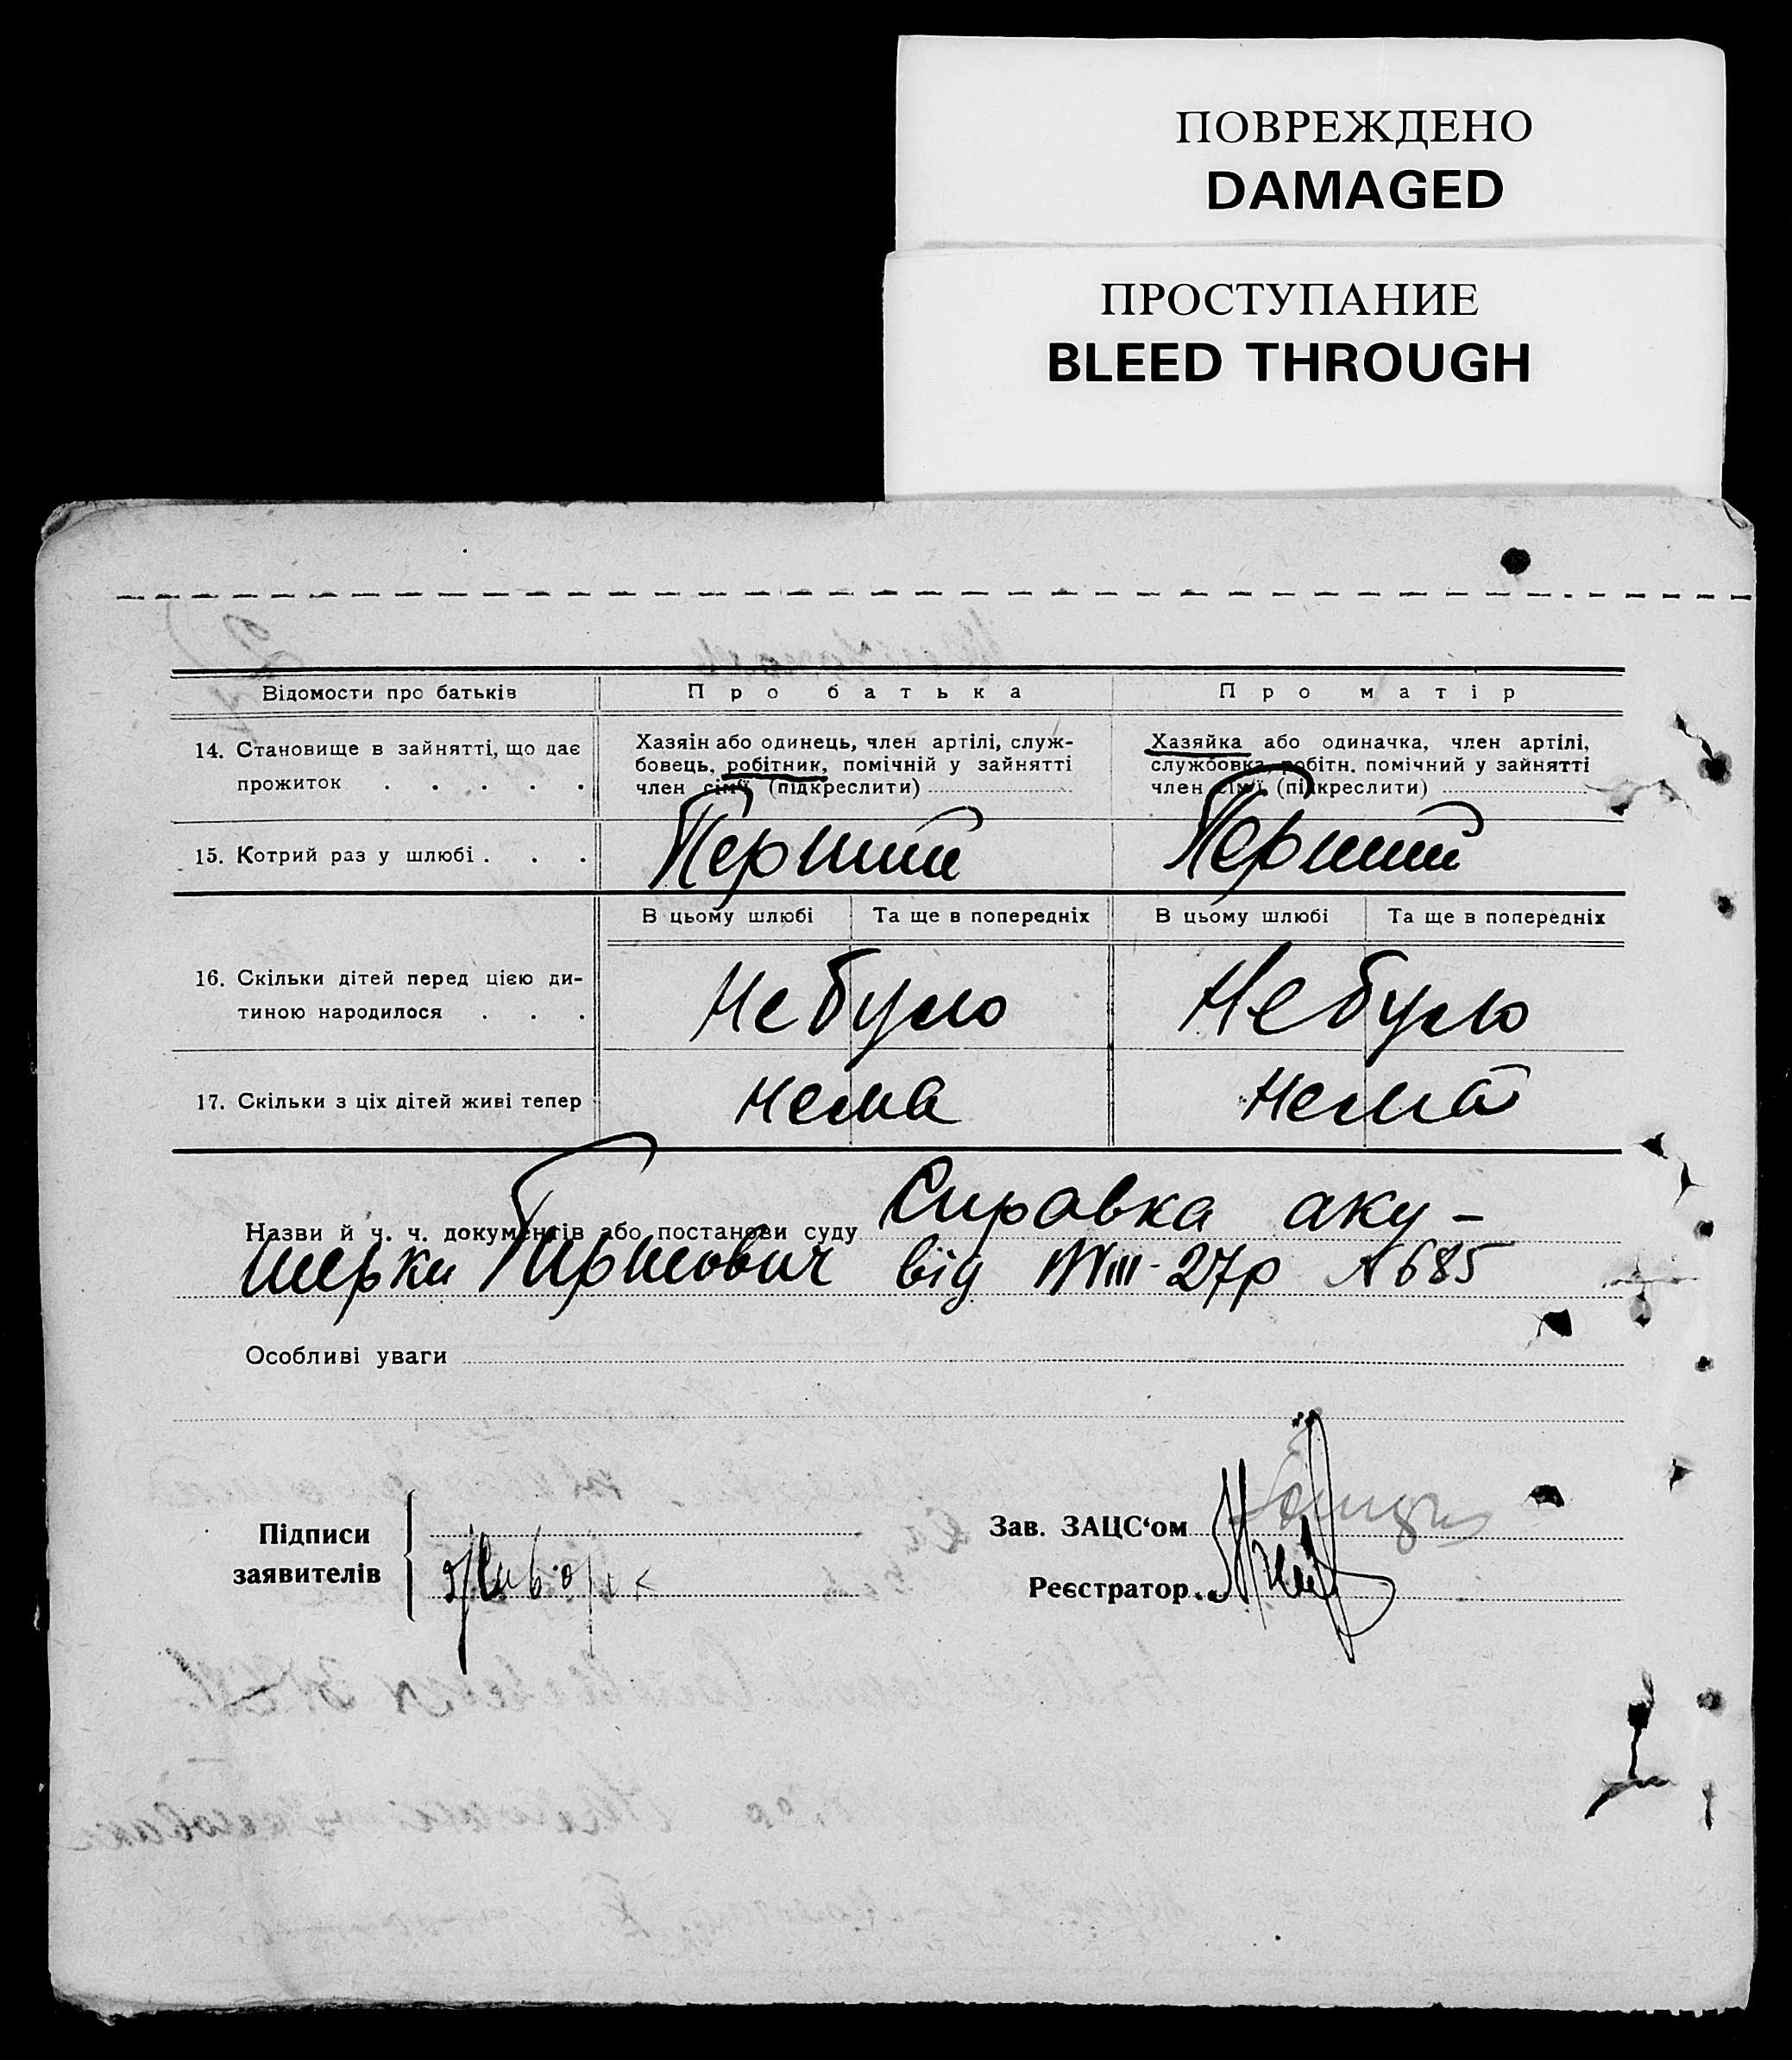 ПОВРЕЖДЕНО
DAMAGED
ПРОСТУПАНИЕ
BLEED THROUGH
Відомости про батьків
Про батька
Про матір
14. Становище в зайнятті, що дає
прожиток . . . . .
Хазяін або одинець, член артілі, служ-
бовець, робітник, помічній у зайнятті
член сім'ї (підкреслити)
Хазяйка або одиначка, член артілі,
службовка, робітн. помічний у зайнятті
член сім'ї (підкреслити)
15. Котрий раз у шлюбі . . .
Перший
Перший
В цьому шлюбі
Та ще в попередніх
В цьому шлюбі
Та ще в попередніх
16. Скільки дітей перед цією ди-
тиною народилося . . .
Не було
Не було
17. Скільки з ціх дітей живі тепер
нема
нема
Назви й ч. ч. документів або постанови суду Справка аку-
шерки від 27р № 685
Особливі уваги
Підписи
заявителів
Зав. ЗАЦС'ом
Реєстратор